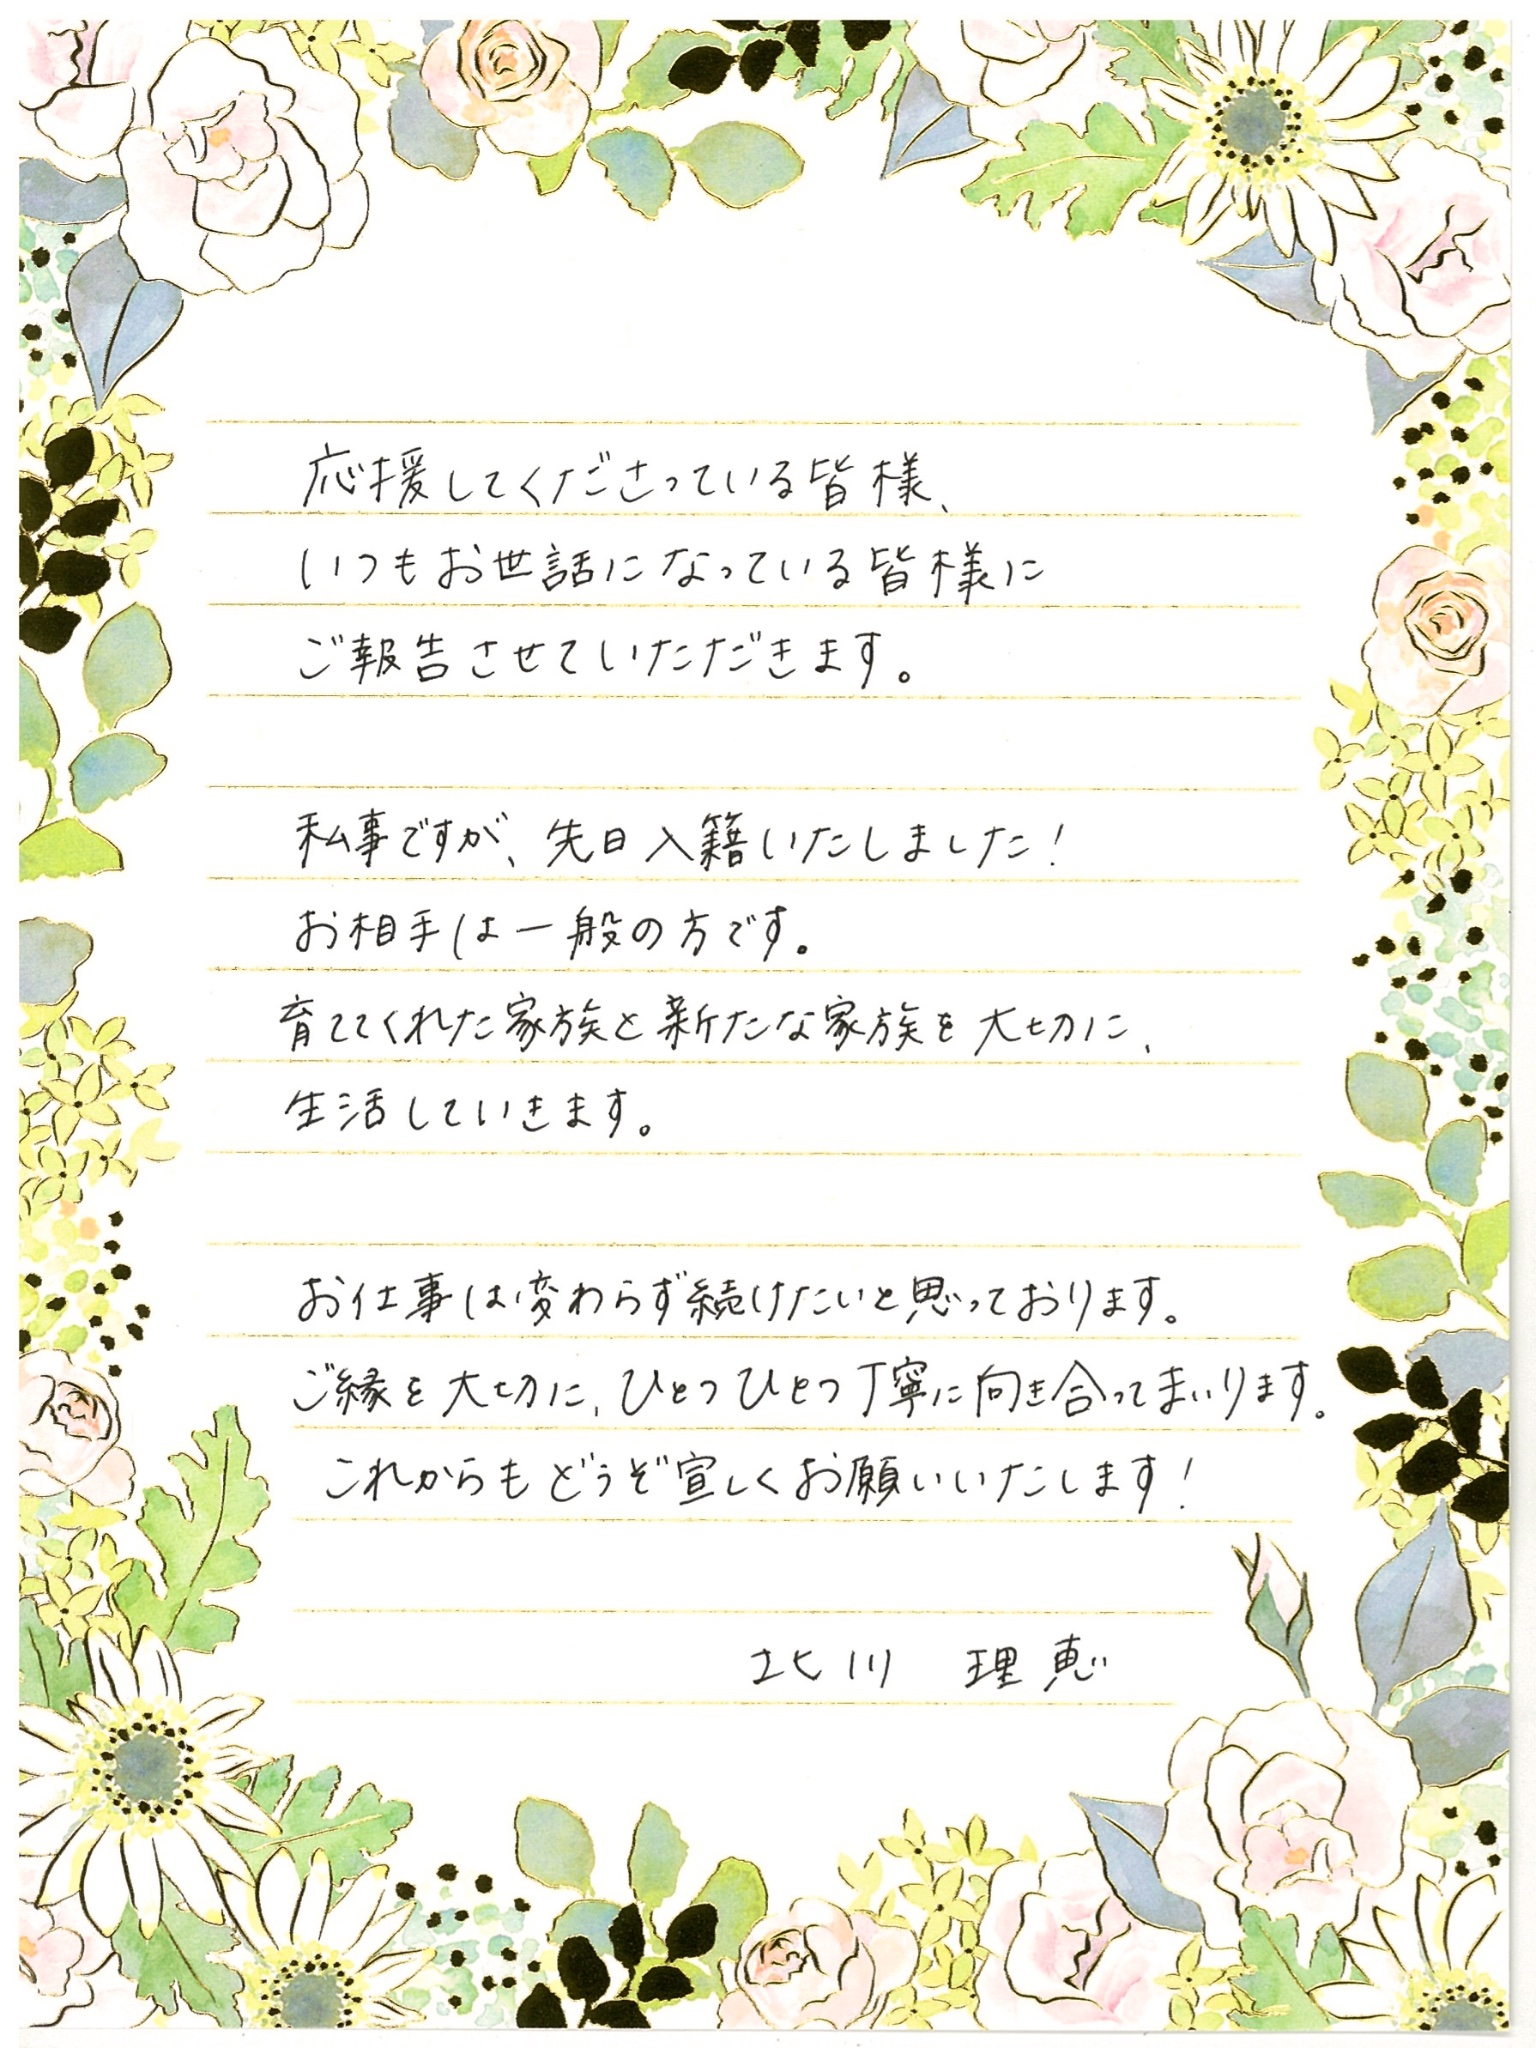 応援してくださっている皆様、
いつもお世話になっている皆様に
ご報告させていただきます。
私事ですが、先日入籍いたしました！
お相手は一般の方です。
育ててくれた家族と新たな家族を大切に、
生活していきます。
お仕事は変わらず続けたいと思っております。
ご縁を大切に、ひとつひとつ丁寧に向き合ってまいります。
これからもどうぞ宜しくお願いいたします！
北川 理恵